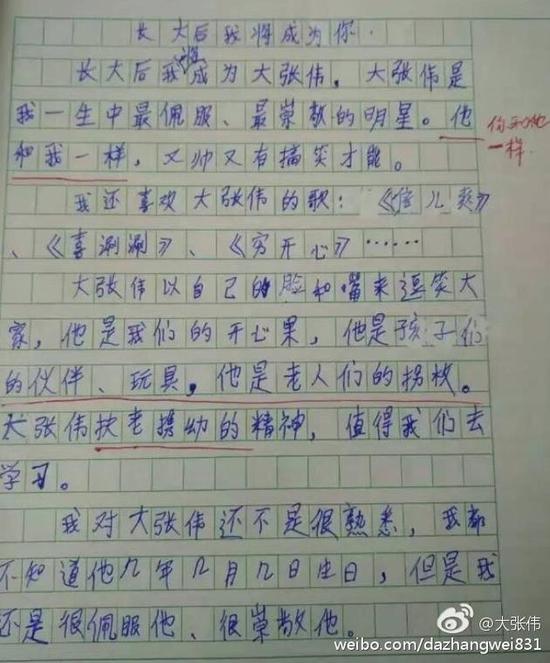 长大后我将成为你.
长大后我将成为大张伟。大张伟是
我一生中最佩服、最崇敬的明星。他
你和他
一样.
和我一样，又帅又有搞笑才能。
我还喜欢大张伟的歌：《倍儿爽》
、《喜涮涮》、《穷开心》……
大张伟以自己的脸和嘴来逗笑大
家，他是我们的开心果，他是孩子们
的伙伴、玩具，他是老人们的拐杖。
大张伟扶老携幼的精神，值得我们去
学习。
我对大张伟还不是很熟悉，我都
不知道他几年几月几日生日，但是我
还是很佩服他、很崇敬他。
@大张伟
weibo.com/dazhangwei831